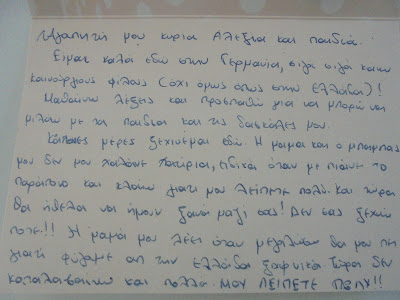 Αγαπητή μου κυρία Αλεξία και παιδιά.
Είμαι καλά εδώ στην Γερμανία, σιγά σιγά κάνω
καινούργιους φίλους (όχι όμως όπως στην Ελλάδα)!
Μαθαίνω λέξεις και προσπαθώ για να μπορώ να
μιλάω με τα παιδιά και τις δασκάλες μου.
Κάποιες μέρες ξεχνιέμαι εδώ. Η μαμά και ο μπαμπάς
μου δεν μου χαλάνε χατήρια, ειδικά όταν με πιάνει το
παράπονο και κλαίω γιατί μου λείπετε πολύ. Και τώρα
θα ήθελα να ήμουν ξανά μαζί σας! Δεν σας ξεχνώ
ποτέ!!! Η μαμά μου λέει όταν μεγαλώσω θα μου πει
γιατί φύγαμε απ την Ελλάδα ξαφνικά. Τώρα δεν
καταλαβαίνω και πολλά. ΜΟΥ ΛΕΙΠΕΤΕ ΠΟΛΥ!!